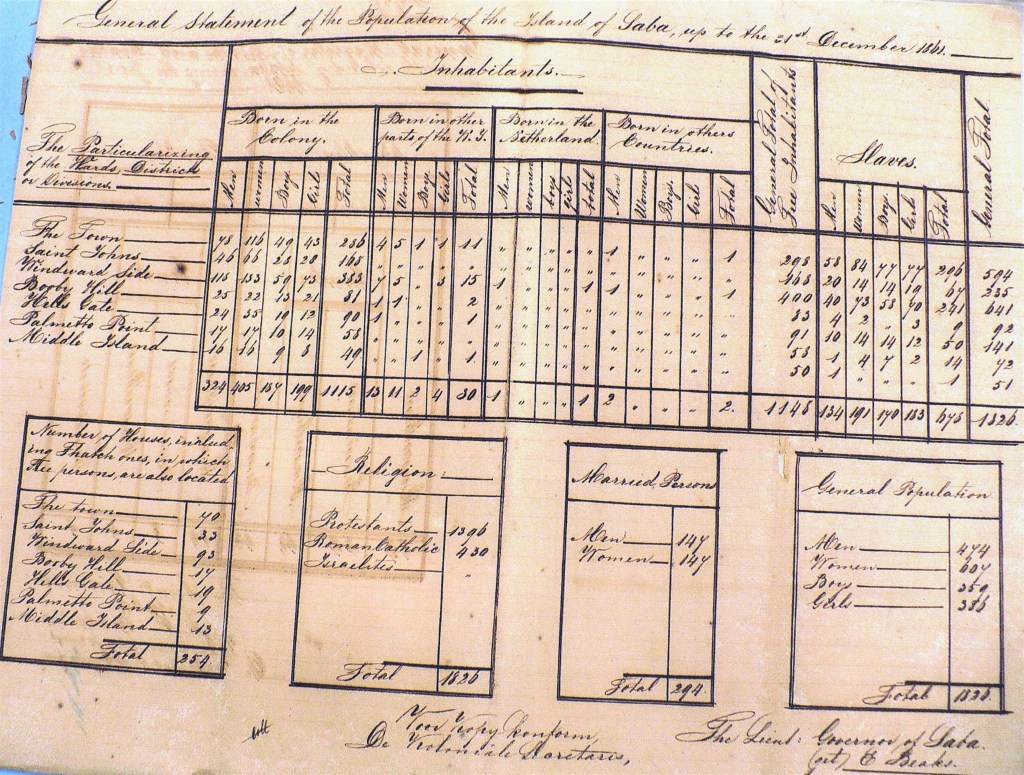 General Statement of the Population of the Island of Saba, up to the 31st December 1861.
Inhabitants.
General Total of Free Inhabitants
Slaves.
General Total.
The Particularizing of the Wards, Districts or Divisions.
Born in the Colony.
Born in other parts of the W. I.
Born in the Netherland.
Born in others Countries.
Men Women Boys Girls Total Men Women Boys Girls Total Men women boys girls total Men Women Boys Girls Total Men Women Boys Girls Total
The Town 78 116 49 43 286 4 5 1 1 11 " " " " " 1 " " " 1 298 58 84 77 77 296 594
Saint Johns 46 66 28 28 168 " " " " " " " " " " " " " " " 168 20 14 14 19 67 235
Windward Side 118 133 59 73 383 7 5 " 3 15 1 " " " 1 1 " " " 1 400 40 73 58 70 241 641
Booby Hill 25 22 13 21 81 1 1 " " 2 " " " " " " " " " " 83 4 2 " 3 9 92
Hells Gate 24 35 19 12 90 1 " " " 1 " " " " " " " " " " 91 10 14 14 12 50 141
Palmetto Point 17 17 10 14 58 " " " " " " " " " " " " " " " 58 1 4 7 2 14 72
Middle Island 16 16 9 8 49 " " 1 " 1 " " " " " " " " " " 50 1 " " " 1 51
324 405 187 199 1115 13 11 2 4 30 1 " " " 1 2 " " " 2. 1148 134 191 170 183 678 1826
Number of Houses, includ
ing Thatch ones, in which
free persons, are also located
The town 70
Saint Johns 33
Windward Side 93
Booby Hill 17
Hells Gate 19
Palmetto Point 9
Middle Island 13
Total 254.
Religion
Protestants 1396
Roman Catholic 430
Israelites "
Total 1826
Married Persons
Men 147
Women 147
Total 294.
General Population
Men 474
Women 607
Boys 359
Girls 386
Total 1826.
Voor Kopy konform,
De Koloniale Secretaris,
The Lieut: Governor of Saba.
(get) E Beaks.